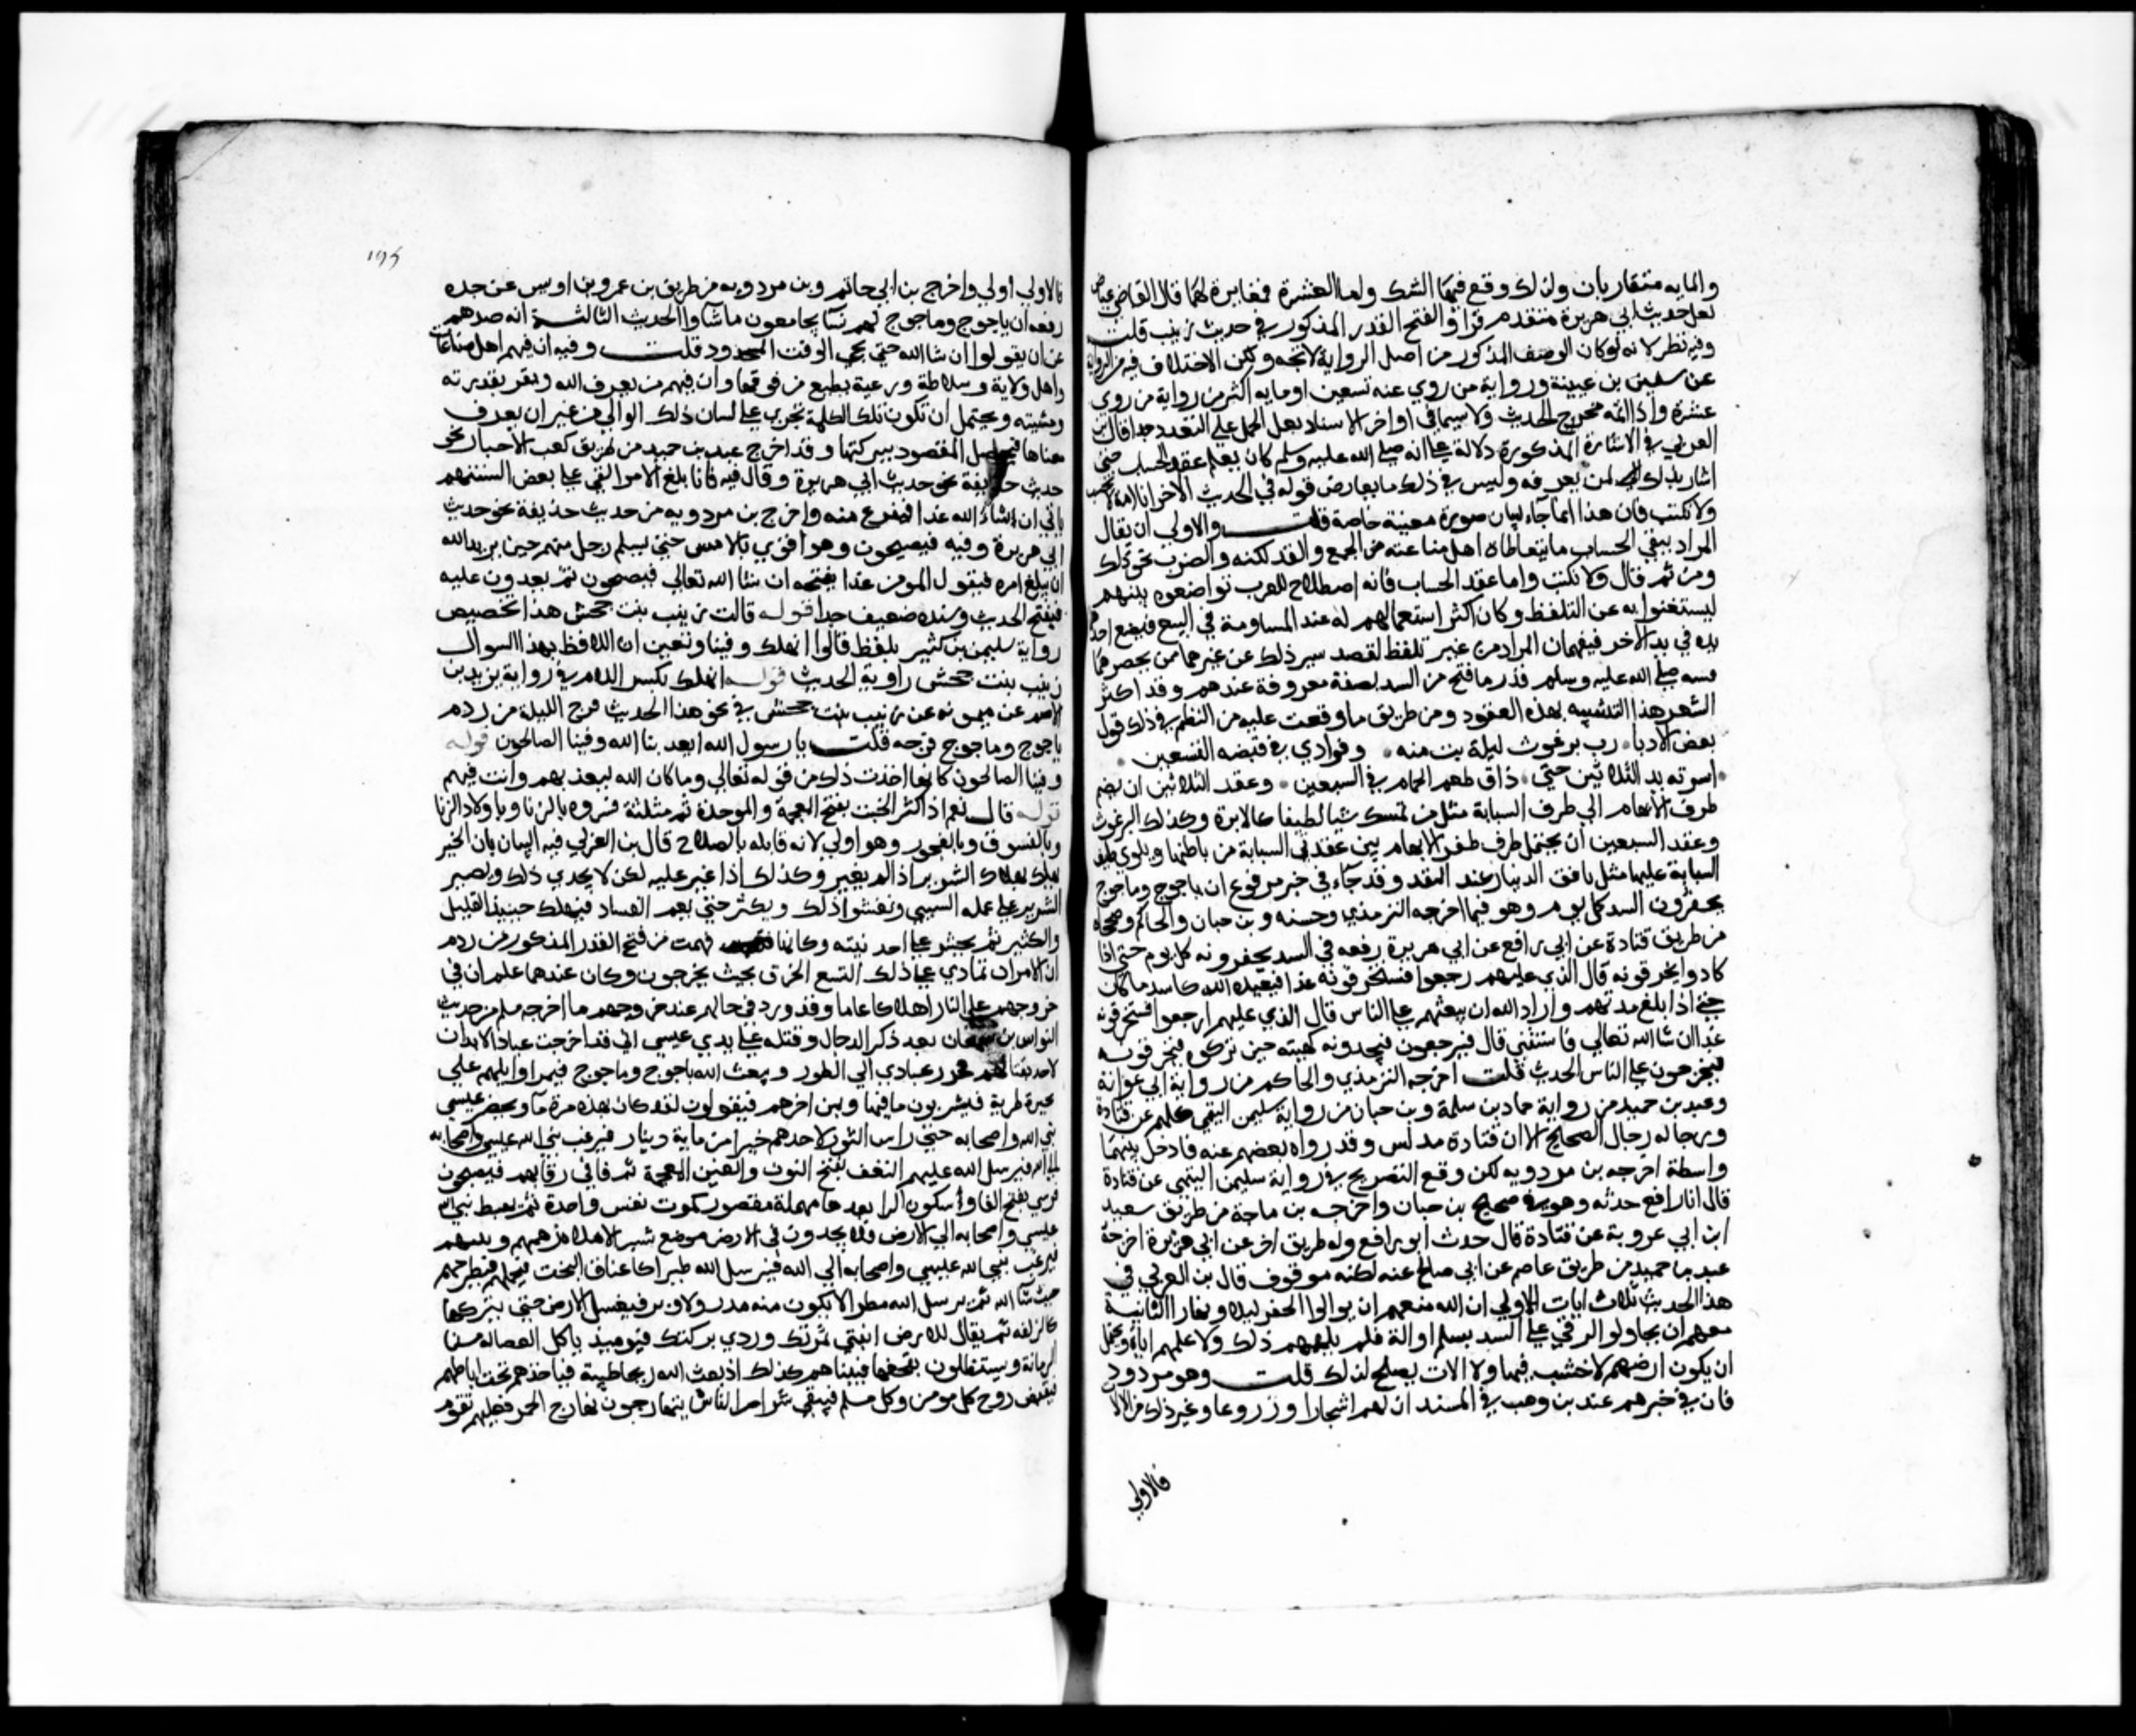 والمايه متقاربان ولذلك وقع فيهما الشك واما العشرة فمغايرة لهما قال القاضي عياض
لعل حديث ابي هريرة متقدم فزاد الفتح القدر المذكور في حديث زينب قلت
وفيه نظر لانه لو كان الوصف المذكور من اصل الرواية لاتجه ولكن الاختلاف فيه من الرواة
عن سفين بن عيينة ورواية من روي عنه تسعين او مايه اكثر من رواية من روي
عشرة واذا اتحد مخرج الحديث ولا سيما في اواخر الاسناد بعد الحمل علي التعدد جدا قال ابن
العربي في الاشارة المذكورة دلالة علي انه صلي الله عليه وسلم كان يعلم عقد الحساب حتي
اشار بذلك لمن يعرفه وليس في ذلك ما يعارض قوله في الحديث الاخر انا امة لا نحسب
ولا نكتب فان هذا انما جاء لبيان صورة معينة خاصة قلت والاولي ان يقال
المراد بنفي الحساب ما يتعاطاه اهل صناعته من الجمع والفذلكة والضرب نحو ذلك
ومن ثم قال ولا نكتب واما عقد الحساب فانه اصطلاح للعرب تواضعوه بينهم
ليستغنوا به عن التلفظ وكان اكثر استعمالهم له عند المساومة في البيع فيضع احدهم
يده في يد الاخر فيفهمان المراد من غير تلفظ لقصد ستر ذلك عن غيرهما ممن يحضرهما
فشبه صلي الله عليه وسلم قدر ما فتح من السد بصفة معروفة عندهم وقد اكثر
الشعر هذا التشبيه بهذه العقود ومن ظريف ما وقعت عليه من النظم في ذلك قول
بعض الادبا رب برغوث ليلة بت منه وفوادي في قبضه التسعين
اسرته يد الثلاثين حتي ذاق طعم الحمام في السبعين وعقد الثلاثين ان يضم
طرف الابهام الي طرف السبابة مثل من تمسك شيا لطيفا كالابرة وكذلك البرغوث
وعقد السبعين ان يجعل طرف ظفر الابهام بين عقدتي السبابة من باطنها ويلوي طرف
السبابة عليها مثل ناقد الدينار عند النقد وقد جاء في خبر مرفوع ان ياجوج وماجوج
يحفرون السد كل يوم وهو فيما اخرجه الترمذي وحسنه وبن حبان والحاكم وصححاه
من طريق قتادة عن ابي رافع عن ابي هريرة رفعه في السد يحفرونه كل يوم حتي اذا
كادوا يخرقونه قال الذي عليهم رجعوا فستخرقونه غدا فيعيده الله كاشد ما كان
حتي اذا بلغ مدتهم واراد الله ان يبعثهم علي الناس قال الذي عليهم ارجعوا فستخرقونه
غدا ان شا الله تعالي واستثني قال فيرجعون فيجدونه كهيئته حين تركوه فيخرقونه
فيخرجون علي الناس الحديث قلت اخرجه الترمذي والحاكم من رواية ابي عوانة
وعبد بن حميد من رواية حماد بن سلمة وبن حبان من رواية سليمن التيمي كلهم عن قتادة
ورجاله رجال الصحيح الا ان قتادة مدلس وقد رواه بعضهم عنه فادخل بينهما
واسطة اخرجه بن مردويه لكن وقع التصريح في رواية سليمن التيمي عن قتادة
قال ان ابا رافع حدثه وهو في صحيح بن حبان واخرجه بن ماجة من طريق سعيد
ابن ابي عروبة عن قتادة قال حدث ابو رافع وله طريق اخر عن ابي هريرة اخرجه
عبد بن حميد من طريق عاصم عن ابي صالح عنه لكنه موقوف قال بن العربي في
هذا الحديث ثلاث ايات الاولي ان الله منعهم ان يوالوا الحفر ليلا ونهارا الثانية
منعهم ان يحاولوا الرقي علي السد بسلم او الة فلم يلهمهم ذلك ولا علمهم اياه ويحتمل
ان يكون ارضهم لا خشب فيها ولا الات يصلح لذلك قلت وهو مردود
فان في خبرهم عند بن وهب في المسند ان لهم اشجارا وزروعا وغير ذلك من الالات
فالاولي
فالاولي اولي واخرج بن ابي حاتم وبن مردويه من طريق بن عمرو بن اوس عن جده
رفعه ان ياجوج وماجوج لهم نسا يجامعون ما شاوا الحديث الثالثة انه صدهم
عن ان يقولوا ان شا الله حتي يجي الوقت المحدود قلت وفيه ان فيهم اهل صناعات
واهل ولاية وسلاطة ورعية يطيع من فوقها وان فيهم من يعرف الله ويقر بقدرته
ومشيته ويحتمل ان تكون تلك الكلمة تجري علي لسان ذلك الوالي من غير ان يعرف
معناها فيحصل المقصود ببركتها وقد اخرج عبد بن حميد من طريق كعب الاحبار نحو
حديث ابي هريرة وقال فيه فاذا بلغ الامر القي علي بعض السنتهم
ناتي ان شاء الله غدا فنفرغ منه واخرج بن مردويه من حديث حذيفة نحو حديث
ابي هريرة وفيه فيصبحون وهو اقوي بالامس حتي يسلم رجل منهم حين يريد الله
ان يبلغ امره فيقول المومن غدا نفتحه ان شا الله تعالي فيصبحون ثم يغدون عليه
فيفتح الحديث وسنده ضعيف جدا قوله قالت زينب بنت جحش هذا تخصيص
رواية سليمن بن كثير بلفظ قالوا انهلك وفينا وتعين ان اللافظ بهذا السوال
زينب بنت جحش راوية الحديث قوله انهلك بكسر اللام في رواية يزيد بن
الاصم عن ميمونه عن زينب بنت جحش في نحو هذا الحديث فرج الليلة من ردم
ياجوج وماجوج فرجه قلت يا رسول الله ايعذبنا الله وفينا الصالحون قوله
وفينا الصالحون كانها اخذت ذلك من قوله تعالي وما كان الله ليعذبهم وانت فيهم
قوله قال نعم اذا كثر الخبث بفتح المعجمة والموحدة ثم مثلثة فسروه بالزنا وباولاد الزنا
وبالفسوق وبالفجور وهو اولي لانه قابله بالصلاح قال بن العربي فيه البيان بان الخير
يهلك بهلاك الشرير اذا لم يغير وكذلك اذا غير عليه لكن لا يجدي ذلك ويصير
الشرير علي عمله السيي وتفشوا ذلك ويكثر حتي يعم الفساد فيهلك حينيذ القليل
والكثير ثم يحشر كل احد نيته وكانها فهمت من فتح القدر المذكور من ردم
ان الامر ان تمادي علي ذلك التسع الخرق بحيث يخرجون وكان عندها علم ان في
خروجهم علي الناس اهلاكا عاما وقد ورد في حالهم عند خروجهم ما اخرجه مسلم من حديث
النواس بن سمعان بعد ذكر الدجال وقتله علي يدي عيسي اني قد اخرجت عبادا لا يدان
لاحد بقتالهم فحرز عبادي الي الطور ويبعث الله ياجوج وماجوج فيمر اوايلهم علي
بحيرة طرية فيشربون ما فيها ويمر اخرهم فيقولون لقد كان بهذه مرة ما ويحصر عيسي
نبي الله واصحابه حتي راس الثور لاحدهم خيرا من ماية دينار فيرغب نبي الله عيسي واصحابه
الي الله فيرسل الله عليهم النغف بفتح النون والغين المعجمة ثم فا في رقابهم فيصبحون
فرسي بفتح الفا وسكون الرا بعدها مهملة مقصور كموت نفس واحدة ثم يهبط نبي الله
عيسي واصحابه الي الارض فلا يجدون في الارض موضع شبر الا ملاه زهمهم ونتنهم
فيرغب نبي الله عيسي واصحابه الي الله فيرسل الله طيرا كاعناق البخت فتحملهم فتطرحهم
حيث شا الله ثم يرسل الله مطرا لا يكون منه مدر ولا وبر فيغسل الارض حتي يتركها
كالزلفه ثم يقال للارض انبتي ثمرتك وردي بركتك فيوميذ ياكل العصابة من
الرمانة ويستظلون بقحفها فبيناهم كذلك اذ بعث الله ريحا طيبة فتاخذهم تحت اباطهم
فيقبض روح كل مومن وكل مسلم فيبقي شرار الناس يتهارجون تهارج الحمر فعليهم تقوم